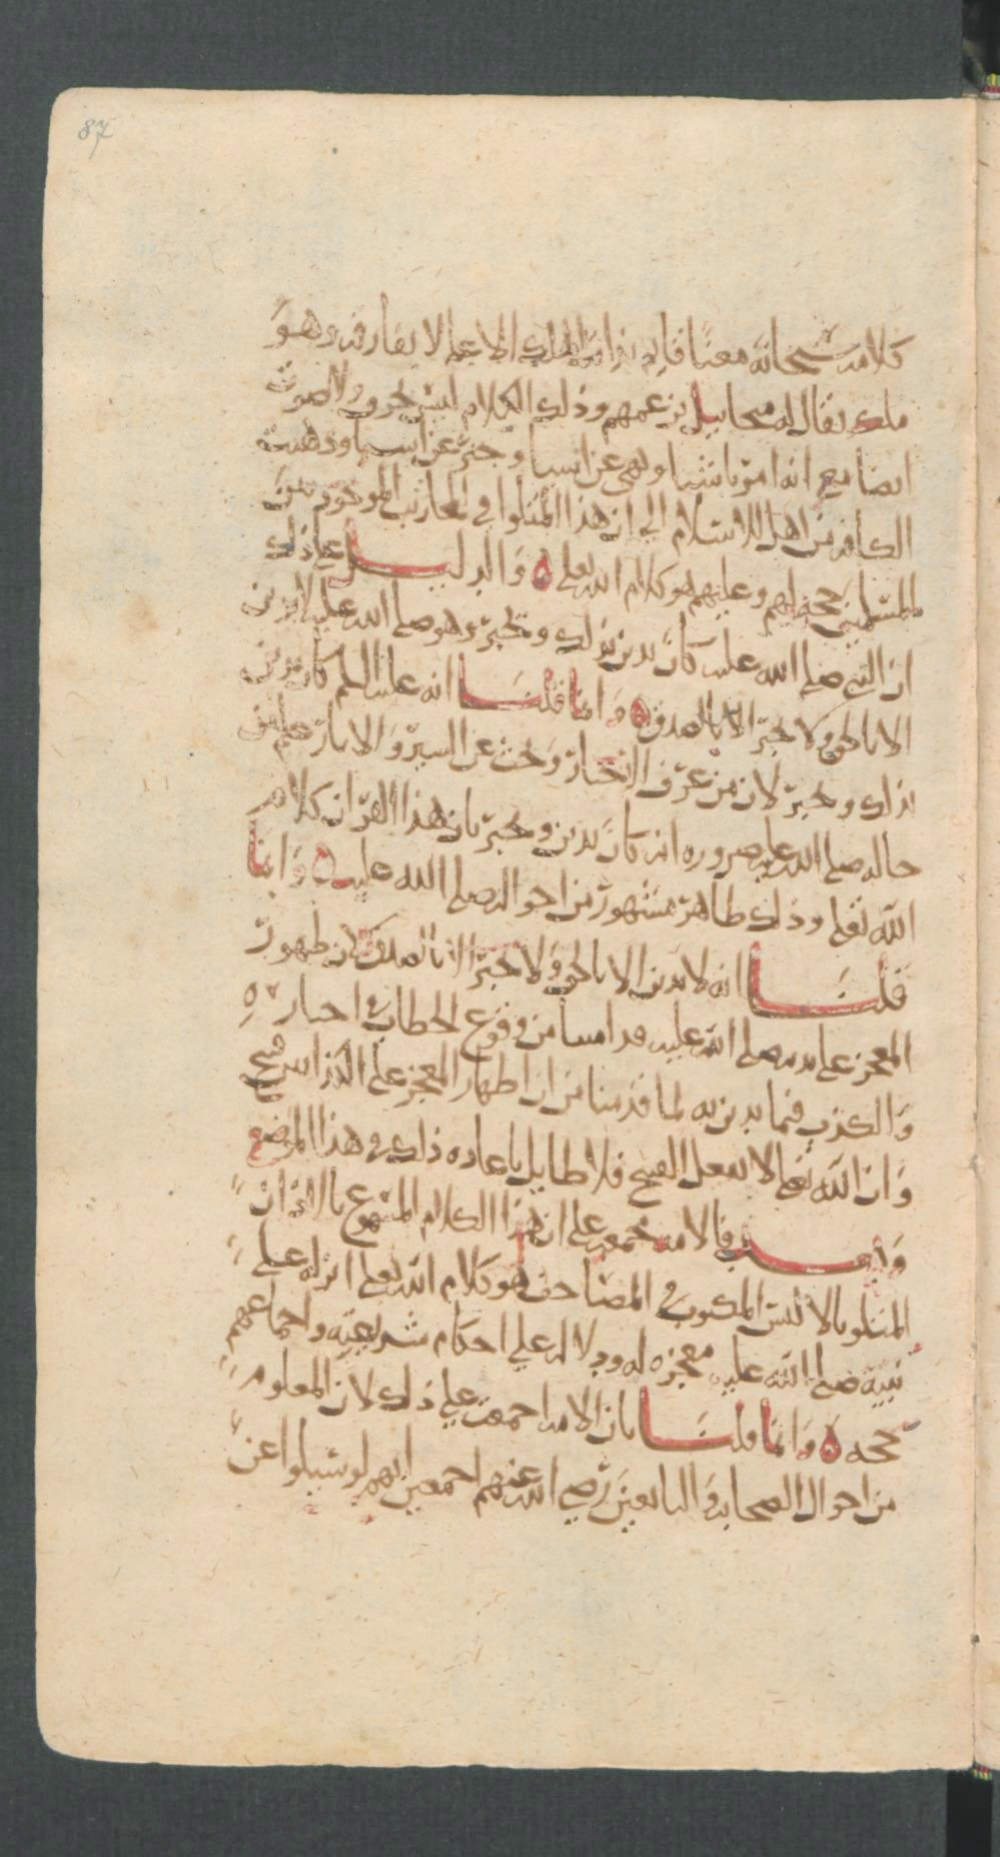 87
كلامه سبحانه معنا قايم بذات الملك الاعلى لا يفارقه وهو
ملك يقال له ميخاييل بزعمهم وذلك الكلام ليس بحروف ولا صوت
ايضا مع انه امر باشيا ونهي عن اشيا وخبر عن اشيا وذهبت
الكافه من اهل الاسلام الى ان هذا المتلوا في المحاريب الموجود بين
المسلمين حجه لهم وعليهم هو كلام الله تعلى ه والدليل على ذلك
ان النبي صلى الله عليه كان يدين بذلك ويخبر به وهو صلى الله عليه لا يدين
الا بالحق ولا يخبر الا بالصدق ه وانما قلنا انه عليه السلم كان يدين
بذلك ويخبر لان من عرف الاخبار وبحث عن السير والاثار علم من
حاله صلى الله عليه ضروره انه كان يدين ويخبر بان هذا القران كلام
الله تعلى وذلك ظاهر مشهور من احواله صلى الله عليه ه وانما
قلنا انه لا يدين الا بالحق ولا يخبر الا بالصدق لان ظهور
المعجز على يديه صلى الله عليه قد امننا من وقوع الخطا في اخباره
والكذب فيما يدين به لما قدمنا من ان اظهار المعجز على الكذابين قبيح
وان الله تعلى لا يفعل القبيح فلا طايل باعاده ذلك في هذا الموضع
وبعد فالامه مجمعه على ان هذا الكلام المسموع بالاذان
المتلو بالالسن المكتوب في المصاحف هو كلام الله تعلى انزله على
نبيه صلى الله عليه معجزه له ودلاله على احكام شريعته واجماعهم
حجه ه وانما قلنا بان الامه اجمعت على ذلك لان المعلوم
من احوال الصحابه والتابعين رضي الله عنهم اجمعين انهم لو سيلوا عن